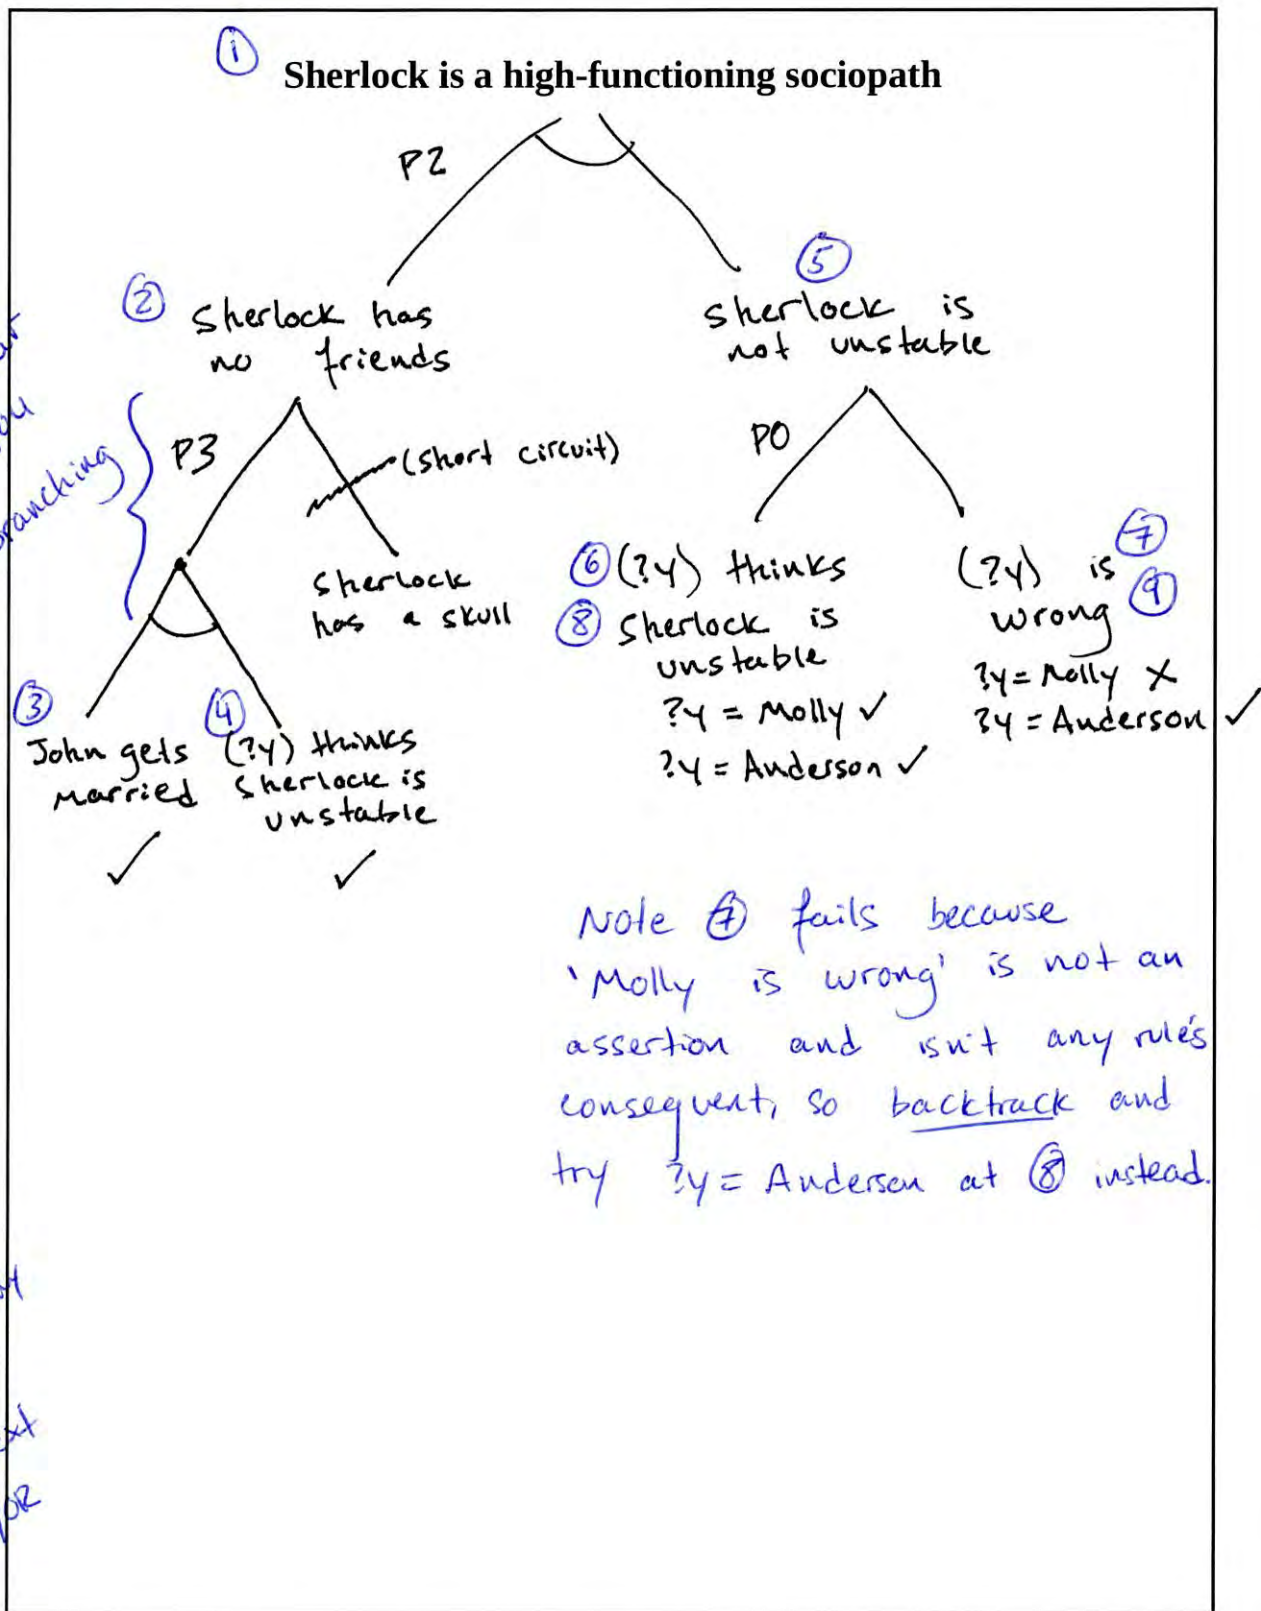 ①
Sherlock is a high-functioning sociopath
P2
②
Sherlock has
no friends
⑤
Sherlock is
not unstable
branching
P3
(short circuit)
P0
Sherlock
has a skull
⑥ (?y) thinks
⑧ Sherlock is
unstable
?y = Molly ✓
?y = Anderson ✓
(?y) is ⑦
wrong ⑨
?y = Molly X
?y = Anderson ✓
③
John gets
married
✓
④
(?y) thinks
Sherlock is
unstable
✓
Note ⑦ fails because
'Molly is wrong' is not an
assertion and isn't any rule's
consequent, so backtrack and
try ?y = Anderson at ⑧ instead.
OR